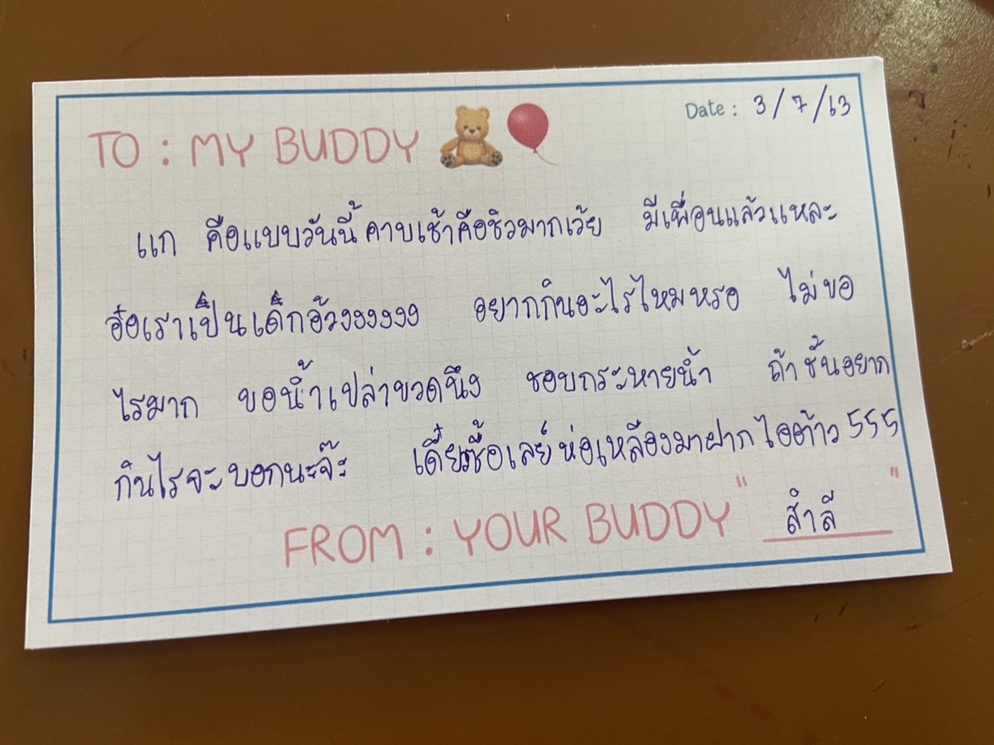 Date : 3/7/63
TO : MY BUDDY
แก คือแบบวันนี้คาบเช้าคือชิวมากเว้ย มีเพื่อนแล้วแหละ
อ๋อเราเป็นเด็กอ้วงงงงงง อยากกินอะไรไหมหรอ ไม่ขอ
ไรมาก ขอน้ำเปล่าขวดนึง ชอบกระหายน้ำ ถ้าชั้นอยาก
กินไรจะบอกนะจ๊ะ เดี๋ยวซื้อเลย์ห่อเหลืองมาฝาก ไอต้าว 555
FROM : YOUR BUDDY " สำลี "